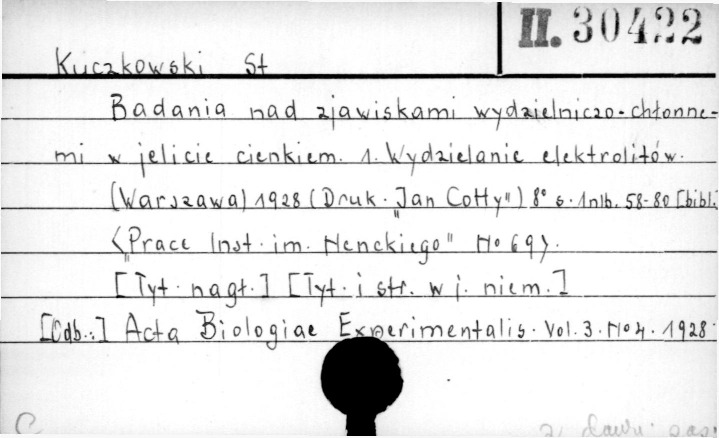 II. 30422
Kuczkowski St
Badania nad zjawiskami wydzielniczo-chłonne-
mi w jelicie cienkiem. 1. Wydzielanie elektrolitów.
(Warszawa) 1928 (Druk. "Jan Cotty") 8° s. 1nlb. 58-80 [bibl.
<"Prace Inst. im. Nenckiego" No 69>.
[Tyt. nagł.] [Tyt. i str. w j. niem.]
[Odb.:] Acta Biologiae Experimentalis. Vol. 3. No 4. 1928.
C